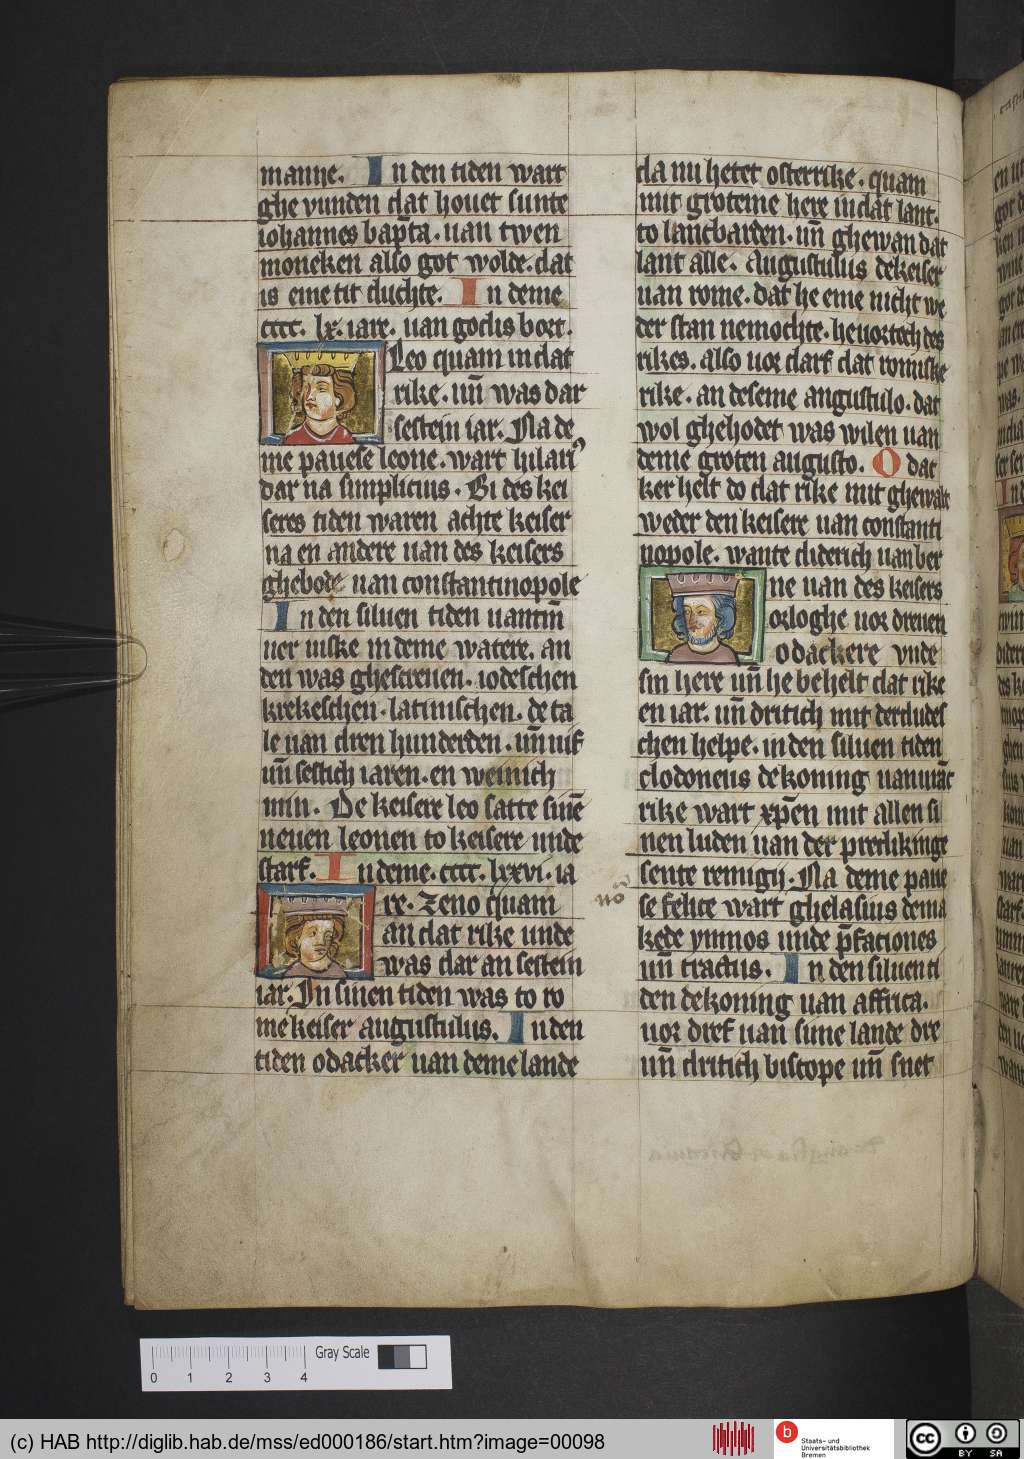 manne. In den tiden wart
ghe vunden dat houet sunte
iohannes bap̄ta. uan twen
moneken also got wolde. dat
is eine tit duchte. In deme
cccc. lx. iare. uan godis bort.
Leo quam in dat
rike. uñ was dar
sestein iar. Na de
me pauese leone. wart hilari᷒
dar na simplicius. Bi des kei
seres tiden waren achte keiser
na en andere uan des keisers
ghebode uan constantinopole
In den siluen tiden uantm̄
uer uiske in deme watere. an
den was ghescreuen. iodeschen
krekeschen. latinischen. de ta
le uan dren hunderden. uñ uif
uñ sestich iaren. en weinich
min. De keisere leo satte sinē
neuen leonen to keisere unde
starf. In deme. cccc. lxxvi. ia
re. Zeno quam
an dat rike unde
was dar an sestein
iar. In sinen tiden was to ro
me keiser augustulus. In den
tiden odacker uan deme lande
da nu hetet osterrike. quam
mit groteme here in dat lant.
to lancbarden. uñ ghewan dat
lant alle. Augustulus de keiser
uan rome. dat he eme nicht we
der stan ne mochte. he uortech des
rikes. also uor darf dat romiske
rike. an deseme augustulo. dat
wol ghehodet was wilen uan
deme groten augusto. Odat
ker helt do dat rike mit ghewalt
weder den keisere uan constanti
nopole. wante diderich uan ber
ne uan des keisers
orloghe uor dreuen
odackere vnde
sin here uñ he behelt dat rike
en iar. uñ dritich mit der dudes
chen helpe. in den siluen tiden
clodoneus de koning uan urāc
rike wart xp̄en mit allen si
nen luden uan der predikinge
sente remigij. Na deme paue
se felice wart ghelasius de ma
kede ymnos unde p̄faciones
uñ tractus. In den siluen ti
den de koning uan affrica.
uor dref uan sime lande dre
uñ dritich biscope uñ snet
Gray Scale
0 1 2 3 4
(c) HAB http://diglib.hab.de/mss/ed000186/start.htm?image=00098
b
Staats- und
Universitätsbibliothek
Bremen
cc
BY SA